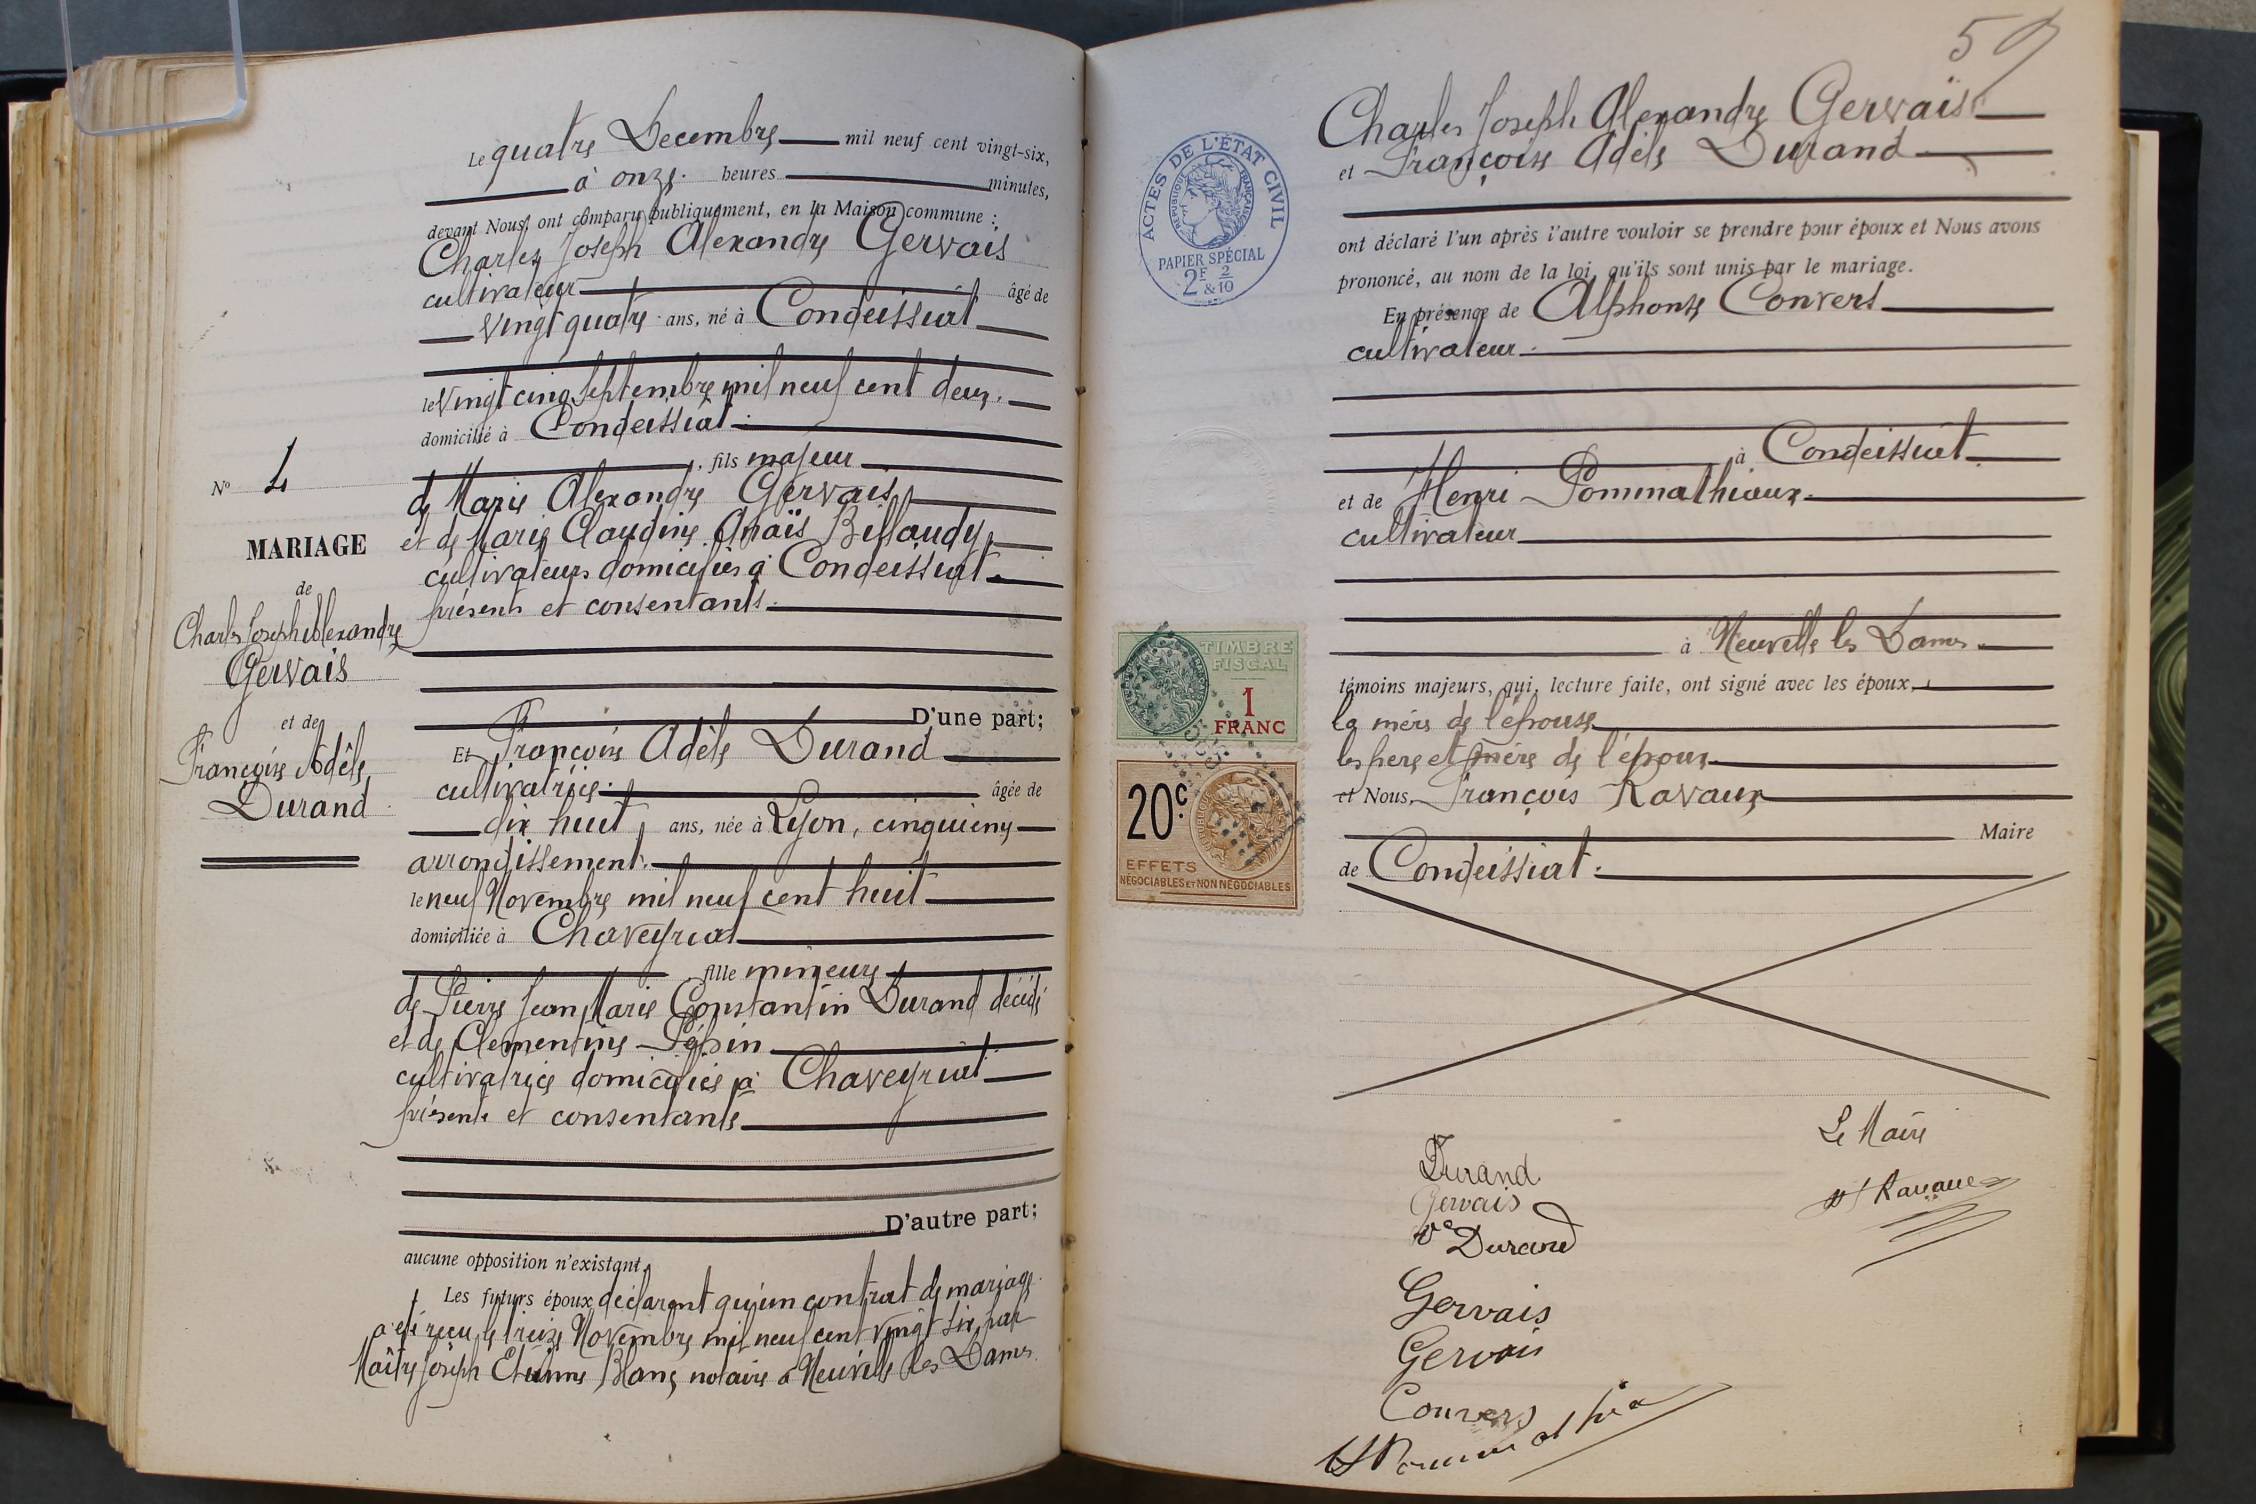 Le quatre Decembre mil neuf cent vingt-six,
à onze heures minutes,
devant Nous, ont comparu publiquement, en la Maison commune :
Charles Joseph Alexandre Gervais
cultivateur âgé de
vingt quatre ans, né à Condeissiat
le vingt cinq Septembre mil neuf cent deux,
domicilié à Condeissiat
, fils majeur
de Marie Alexandre Gervais
et de Marie Claudine Anaïs Billaudy
cultivateurs domiciliés à Condeissiat
présents et consentants.
D'une part;
Nº 4
MARIAGE
de
Charles Joseph Alexandre
Gervais
et de
Françoise Adèle
Durand
Et Françoise Adèle Durand
cultivatrice âgée de
dix huit ans, née à Lyon, cinquième
arrondissement.
le neuf Novembre mil neuf cent huit
domiciliée à Chaveyriat
, fille mineure
de Pierre Jean Marie Constantin Durand décédé
et de Clementine Pépin
cultivatrice domiciliée à Chaveyriat
présente et consentante
D'autre part;
aucune opposition n'existant,
Les futurs époux déclarent qu'un contrat de mariage
a été reçu le treize Novembre mil neuf cent vingt six par
Maître Joseph Etienne Blanc notaire à Neuville les Dames
59
Charles Joseph Alexandre Gervais
et Françoise Adèle Durand
ont déclaré l'un après l'autre vouloir se prendre pour époux et Nous avons
prononcé, au nom de la loi, qu'ils sont unis par le mariage.
En présence de Alphonse Convert
cultivateur
à Condeissiat
et de Henri Pommathiaux
cultivateur
à Neuville les Dames
témoins majeurs, qui, lecture faite, ont signé avec les époux,
la mère de l'épouse
les père et mère de l'époux
et Nous, François Ravaux
Maire
de Condeissiat.
ACTES DE L'ÉTAT CIVIL
RÉPUBLIQUE FRANÇAISE
PAPIER SPÉCIAL
2F & 2/10
TIMBRE
FISCAL
1
FRANC
20c
EFFETS
NÉGOCIABLES ET NON NÉGOCIABLES
Durand
Gervais
Ve Durand
Gervais
Gervais
Convers
Le Maire
Ravaux